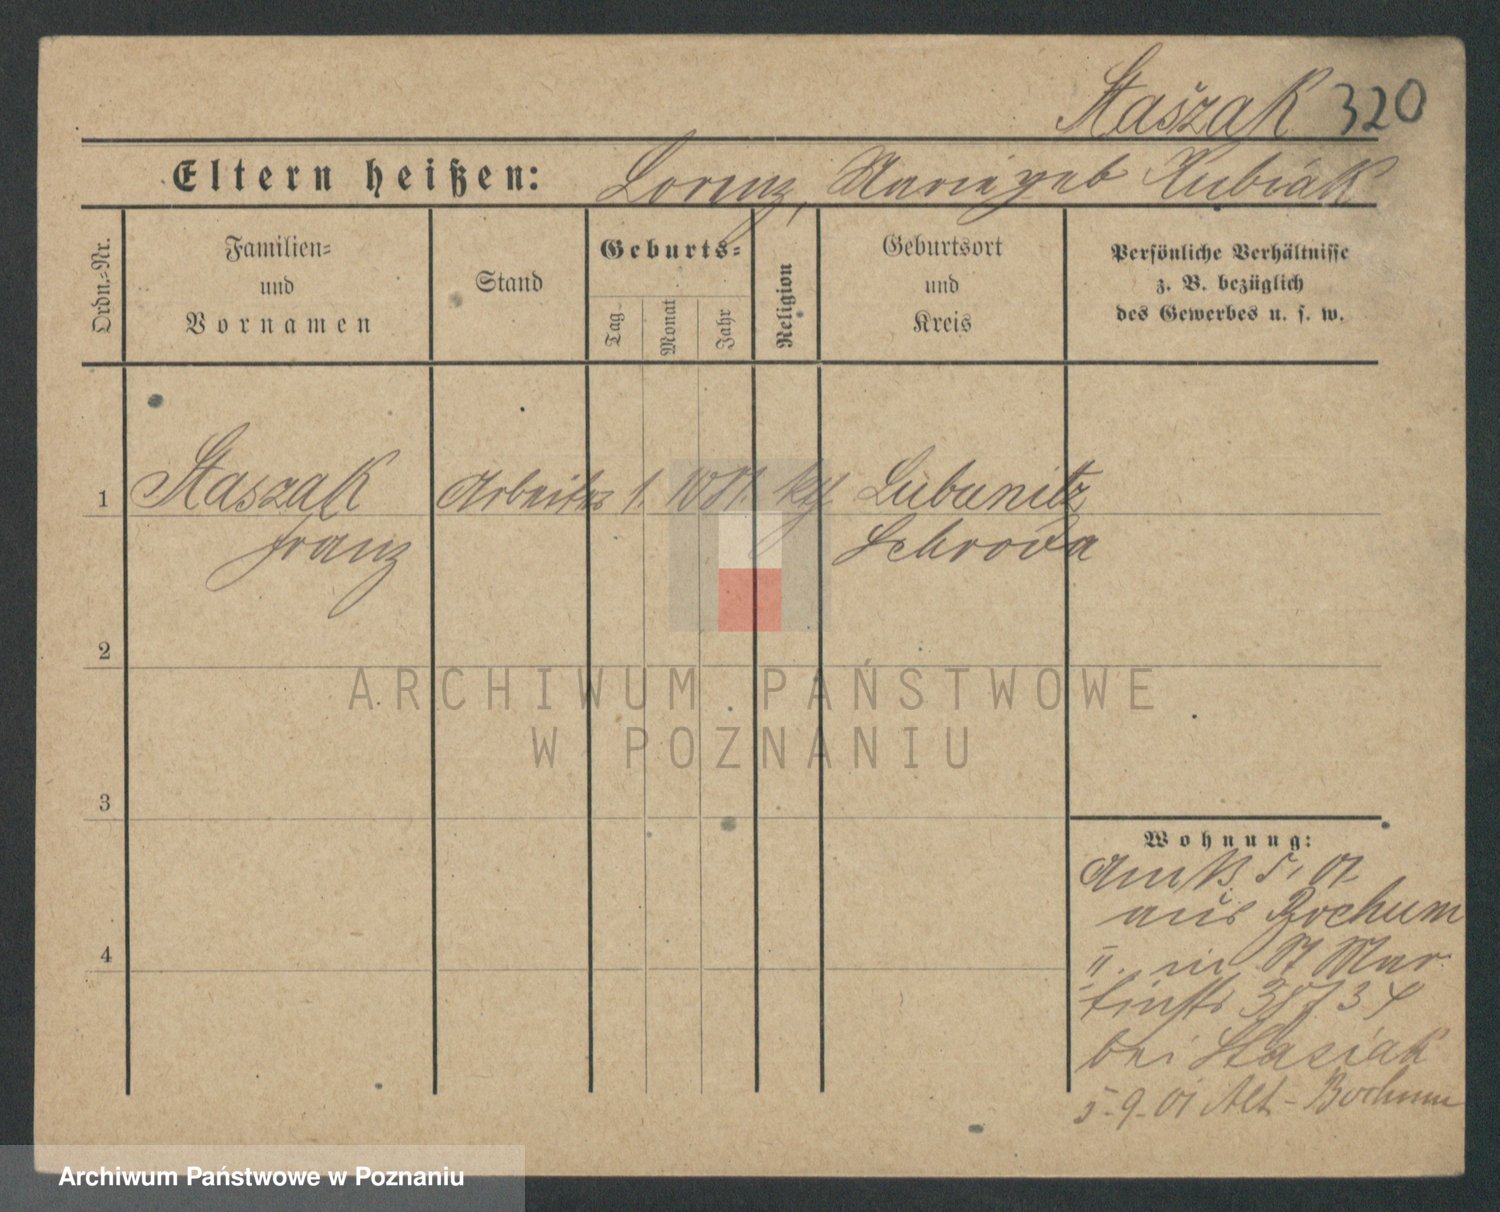 Staszak 320
Eltern heißen: Lorenz, Marie geb Kubiak
Ordn.-Nr.
Familien-
und
Vornamen
Stand
Geburts-
Tag
Monat
Jahr
Religion
Geburtsort
und
Kreis
Persönliche Verhältnisse
z. B. bezüglich
des Gewerbes u. s. w.
1 Staszak Arbeiter kth Lubonitz
Franz Schroda
2
3
4
Wohnung:
5. 01
aus Bochum
in St Mar
tinstr
bei Stasiak
5-9-01 Alt-Bochum
ARCHIWUM PAŃSTWOWE
W POZNANIU
Archiwum Państwowe w Poznaniu